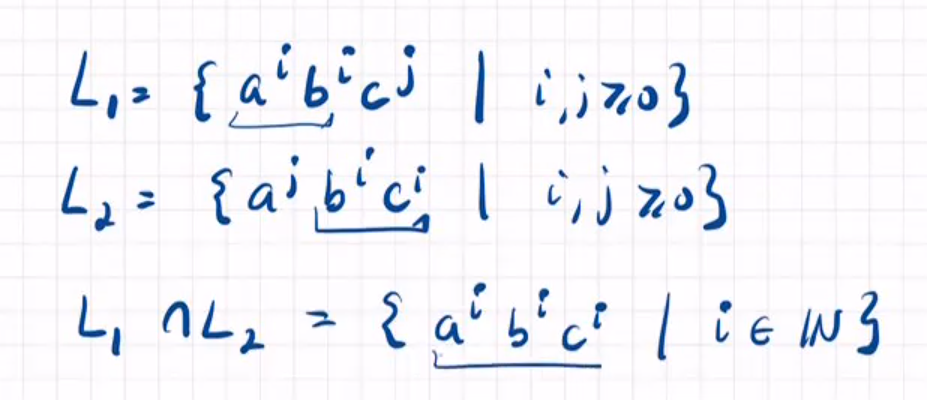 L₁ = { aⁱ bⁱ cʲ | i, j ⩾ 0 }
L₂ = { aʲ bⁱ cⁱ | i, j ⩾ 0 }
L₁ ∩ L₂ = { aⁱ bⁱ cⁱ | i ∈ ℕ }